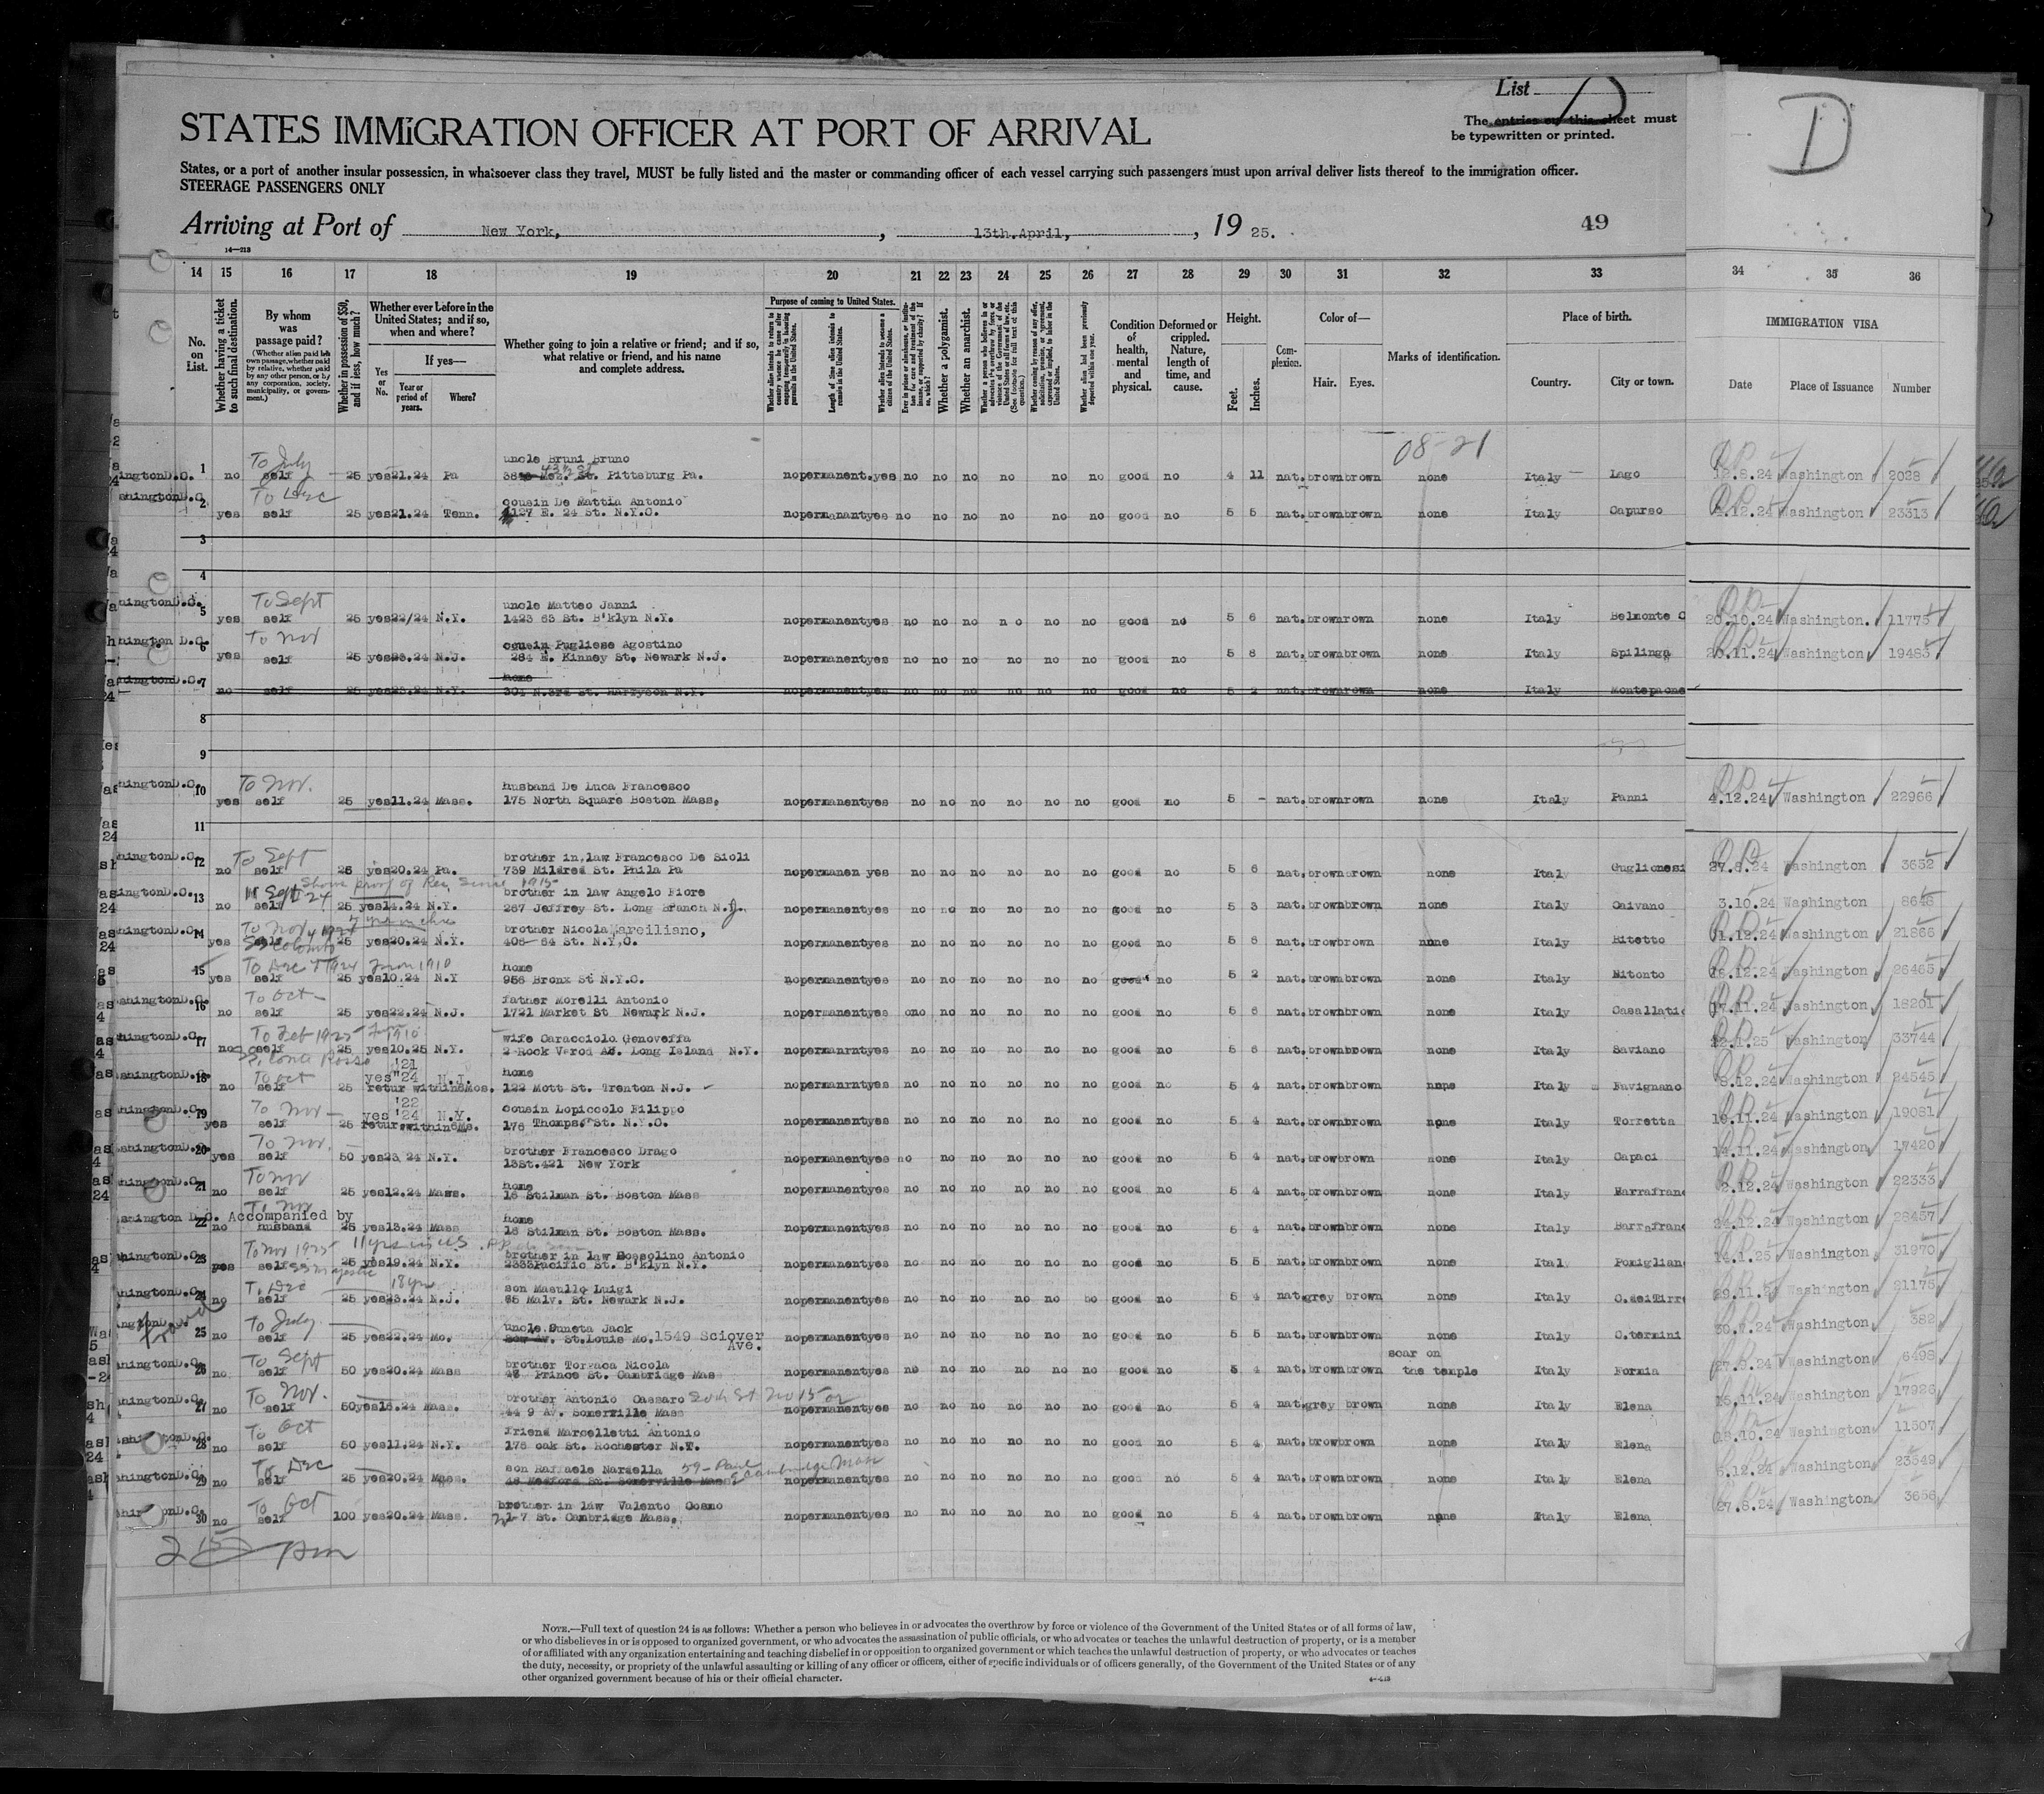 List D
D
STATES IMMIGRATION OFFICER AT PORT OF ARRIVAL
The entries on this sheet must
be typewritten or printed.
States, or a port of another insular possession, in whatsoever class they travel, MUST be fully listed and the master or commanding officer of each vessel carrying such passengers must upon arrival deliver lists thereof to the immigration officer.
STEERAGE PASSENGERS ONLY
Arriving at Port of New York, , 13th.April, , 19 25.
49
14—213
14 15 16 17 18 19 20 21 22 23 24 25 26 27 28 29 30 31 32 33 34 35 36
No. on List.
Whether having a ticket to such final destination.
By whom was passage paid?
(Whether alien paid his own passage, whether paid by relative, whether paid by any other person, or by any corporation, society, municipality, or government.)
Whether in possession of $50, and if less, how much?
Whether ever before in the United States; and if so, when and where?
If yes—
Yes or No.
Year or period of years.
Where?
Whether going to join a relative or friend; and if so, what relative or friend, and his name and complete address.
Purpose of coming to United States.
Length of time alien intends to remain in the United States.
Whether a polygamist.
Whether an anarchist.
Condition of health, mental and physical.
Deformed or crippled. Nature, length of time, and cause.
Height.
Feet.
Inches.
Complexion.
Color of—
Hair.
Eyes.
Marks of identification.
Place of birth.
Country.
City or town.
IMMIGRATION VISA
Date
Place of Issuance
Number
08-21
To July
uncle Bruni Bruno
1 no self 25 yes 21.24 Pa St. Pittsburg Pa. no permanent. yes no no no no no no good no 4 11 nat. brown brown none Italy Lago 12.8.24 Washington 2028
To Dec
cousin De Mattia Antonio
2 yes self 25 yes 21.24 Tenn. 127 E. 24 St. N.Y.C. no permanant yes no no no no no no good no 5 5 nat. brown brown none Italy Capurso 12.24 Washington 23313
3
4
To Sept
uncle Matteo Janni
5 yes self 25 yes 22/24 N.Y. 1423 63 St. B'klyn N.Y. no permanent yes no no no n o no no good no 5 6 nat. brown brown none Italy Belmonte C 20.10.24 Washington. 11775
To Nov
cousin Pugliese Agostino
6 yes self 25 yes 23.24 N.J. 284 E. Kinney St. Newark N.J. no permanent yes no no no no no no good no 5 8 nat. brown brown none Italy Spilinga 20.11.24 Washington 19483
home
7 no self 25 yes 23.24 N.Y. 301 N.3rd St. Harryson N.Y. no permanent yes no no no no no no good no 5 2 nat. brown rown none Italy Montepaone
8
9
To Nov.
husband De Luca Francesco
10 yes self 25 yes 11.24 Mass. 175 North Square Boston Mass. no permanent yes no no no no no no good no 5 - nat. brown rown none Italy Panni 4.12.24 Washington 22966
11
To Sept
brother in law Francesco De Sioli
12 no self 25 yes 20.24 Pa. 739 Mildred St. Phila Pa no permanen yes no no no no no no good no 5 6 nat. brown brown none Italy Guglionesi 27.8.24 Washington 3652
Sept 24 Show proof of Res. Since 1915
brother in law Angelo Fiore
13 no self 25 yes 14.24 N.Y. 267 Jeffrey St. Long Branch N.J. no permanent yes no no no no no no good no 5 3 nat. brown brown none Italy Caivano 3.10.24 Washington 8646
To Nov 4 1924
SS Colombo
brother Nicola
14 yes self 25 yes 20.24 N.Y. 405- 64 St. N.Y.C. no permanent yes no no no no no no good no 5 6 nat. brown brown none Italy Bitetto 1.12.24 Washington 21866
To Dec 1924 From 1910
home
15 yes self 25 yes 10.24 N.Y 956 Bronx St N.Y.C. no permanent yes no no no no no no good no 5 2 nat. brown brown none Italy Bitonto 16.12.24 Washington 26465
To Oct -
father Morelli Antonio
16 no self 25 yes 22.24 N.J. 1721 Market St Newark N.J. no permanent yes no no no no no no good no 5 6 nat. brown brown none Italy Casallati 17.11.24 Washington 18201
To Feb 1925 From 1910
SS Conte Rosso
wife Caracciolo Genoveffa
17 no self 25 yes 10.25 N.Y. 2 Rock Verod Av. Long Island N.Y. no permanrnt yes no no no no no no good no 5 6 nat. brown brown none Italy Saviano 22.1.25 Washington 33744
To Oct
'21
yes "24 N.J.
home
18 no self 25 retur within 6 mos. 122 Mott St. Trenton N.J. no permanrnt yes no no no no no no good no 5 4 nat. brown brown none Italy Favignano 8.12.24 Washington 24545
To Nov -
'22
yes '24 N.Y.
cousin Lopiccolo Filippo
19 yes self 25 retur. within 6 Ms. 176 Thomps. St. N.Y.C. no permanent yes no no no no no no good no 5 4 nat. brown brown none Italy Torretta 19.11.24 Washington 19081
To Nov.
brother Francesco Drago
20 yes self 50 yes 23 24 N.Y. 13St.421 New York no permanent yes no no no no no no good no 5 4 nat. brown brown none Italy Capaci 14.11.24 Washington 17420
To Nov
home
21 no self 25 yes 12.24 Mass. 18 Stilman St. Boston Mass no permanent yes no no no no no no good no 5 4 nat. brown brown none Italy Barrafranc 2.12.24 Washington 22333
To Nov
Accompanied by
home
22 no husband 25 yes 13.24 Mass 18 Stilman St. Boston Mass. no permanent yes no no no no no no good no 5 4 nat. brown brown none Italy Barrafranc 24.12.24 Washington 28457
To Nov 1925 11 yrs in US
SS Majestic
brother in law Bossolino Antonio
23 yes self 25 yes 19.24 N.Y. 2333 Pacific St. B'klyn N.Y. no permanent yes no no no no no no good no 5 5 nat. brown brown none Ital Pomiglian 14.1.25 Washington 31970
To Dec 18 yrs
son Masullo Luigi
24 no self 25 yes 23.24 N.J. 65 Malv. St. Newark N.J. no permanent yes no no no no no no good no 5 4 nat. grey brown none Italy C.deiTirr 29.11.24 Washington 21175
To July
uncle Suneta Jack
25 no self 25 yes 22.24 Mo. St. Louis Mo. 1549 Sciover Ave. no permanent yes no no no no no no good no 5 5 nat. brown brown none Italy C.termini 30.7.24 Washington 382
To Sept
brother Torraca Nicola
scar on
26 no self 50 yes 20.24 Mass 47 Prince St. Cambridge Mas no permanent yes no no no no no no good no 5 4 nat. brown brown the temple Italy Formia 27.9.24 Washington 6498
To Nov.
brother Antonio Cassaro
27 no self 50 yes 15.24 Mass. 44 9 Av. Somerville Mass no permanent yes no no no no no no good no 5 4 nat. grey brown none Italy Elena 15.11.24 Washington 17926
To Oct
friend Marcelletti Antonio
28 no self 50 yes 11.24 N.Y. 175 oak St. Rochester N.Y. no permanent yes no no no no no no good no 5 4 nat. brown brown none Italy Elena 18.10.24 Washington 11507
To Dec
son Raffaele Nardella 59- Cambridge Mass
29 no self 25 yes 20.24 Mass. 48 Medford St. Somerville Mass. no permanent yes no no no no no no good no 5 4 nat. brown brown none Italy Elena 5.12.24 Washington 23549
To Oct
brother in law Valento Cosmo
30 no self 100 yes 20.24 Mass. 7 St. Cambridge Mass. no permanent yes no no no no no no good no 5 4 nat. brown brown none Italy Elena 27.8.24 Washington 3656
2 15 pm
NOTE.—Full text of question 24 is as follows: Whether a person who believes in or advocates the overthrow by force or violence of the Government of the United States or of all forms of law,
or who disbelieves in or is opposed to organized government, or who advocates the assassination of public officials, or who advocates or teaches the unlawful destruction of property, or is a member
of or affiliated with any organization entertaining and teaching disbelief in or opposition to organized government or which teaches the unlawful destruction of property, or who advocates or teaches
the duty, necessity, or propriety of the unlawful assaulting or killing of any officer or officers, either of specific individuals or of officers generally, of the Government of the United States or of any
other organized government because of his or their official character.